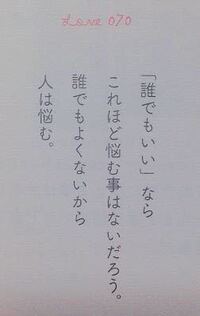 Love 070
「誰でもいい」なら
これほど悩む事はないだろう。
誰でもよくないから
人は悩む。